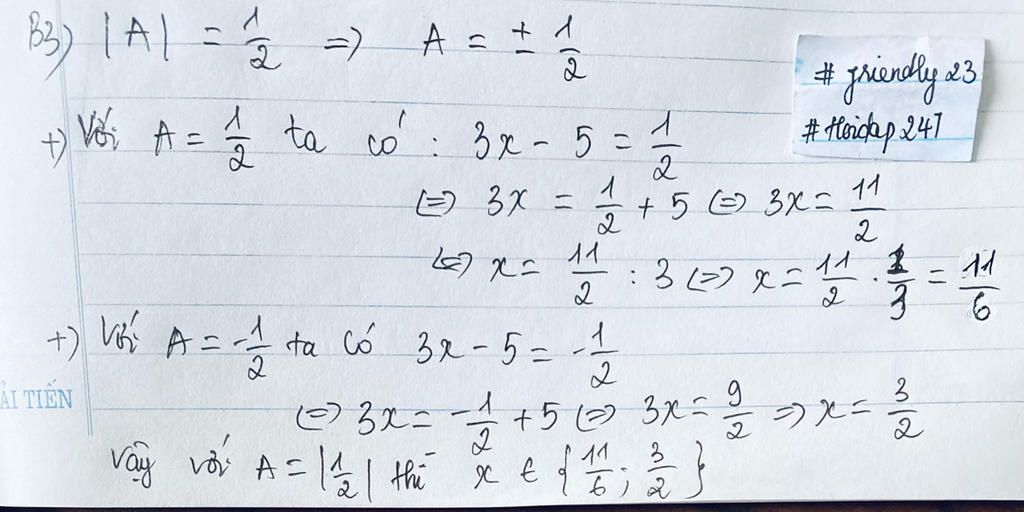 B3) |A| = 1/2 => A = ± 1/2
# friendly 23
# Hoidap 247
+) Với A = 1/2 ta có : 3x - 5 = 1/2
<=> 3x = 1/2 + 5 <=> 3x = 11/2
<=> x = 11/2 : 3 <=> x = 11/2 . 1/3 = 11/6
+) Với A = -1/2 ta có 3x - 5 = -1/2
<=> 3x = -1/2 + 5 <=> 3x = 9/2 => x = 3/2
ẢI TIẾN
Vậy với A = |1/2| thì x ∈ {11/6; 3/2}